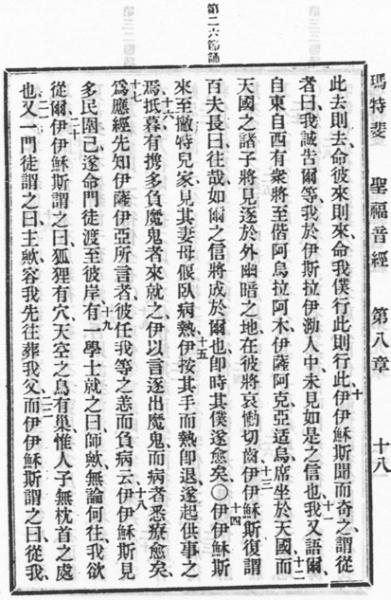 瑪特斐 聖福音經 第八章 十八
第二六節誦
此去則去命彼來則來命我僕行此則行此十伊伊穌斯聞而奇之謂從
者曰我誠告爾等我於伊斯拉伊泐人中未見如是之信也十一我又語爾
自東自西有衆將至偕阿烏拉阿木伊薩阿克亞适烏席坐於天國十二而
天國之諸子將見逐於外幽暗之地在彼將哀慟切齒十三伊伊穌斯復謂
百夫長曰往哉如爾之信將成於爾也卽時其僕遂愈矣〇十四伊伊穌斯
來至撇特兒家見其妻母偃臥病熱十五伊按其手而熱卽退遂起供事之
焉十六抵暮有攜多負魔鬼者來就之伊以言逐出魔鬼而病者悉療愈矣
十七爲應經先知伊薩伊亞所言者彼任我等之恙而負病云十八伊伊穌斯見
多民圍己遂命門徒渡至彼岸十九有一學士就之曰師歟無論何往我欲
從爾二十伊伊穌斯謂之曰狐狸有穴天空之鳥有巢惟人子無枕首之處
也二一又一門徒謂之曰主歟容我先往葬我父二二而伊伊穌斯謂之曰從我